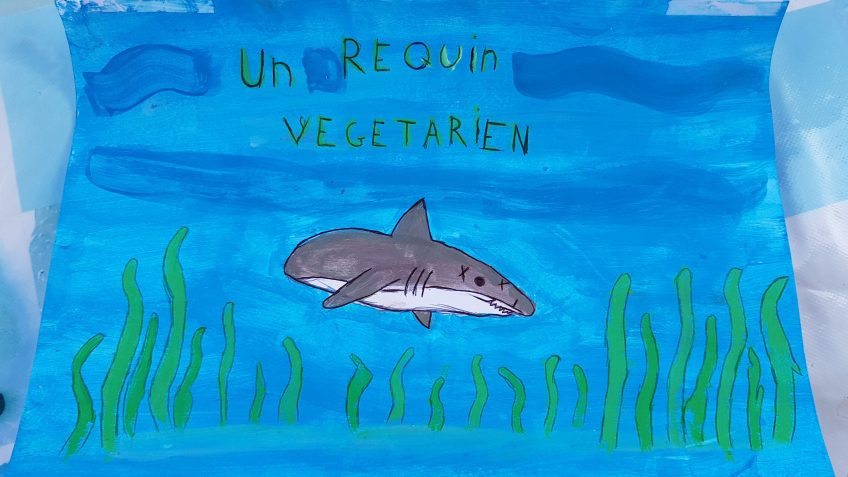 Un REQUin
VEGETARIEN